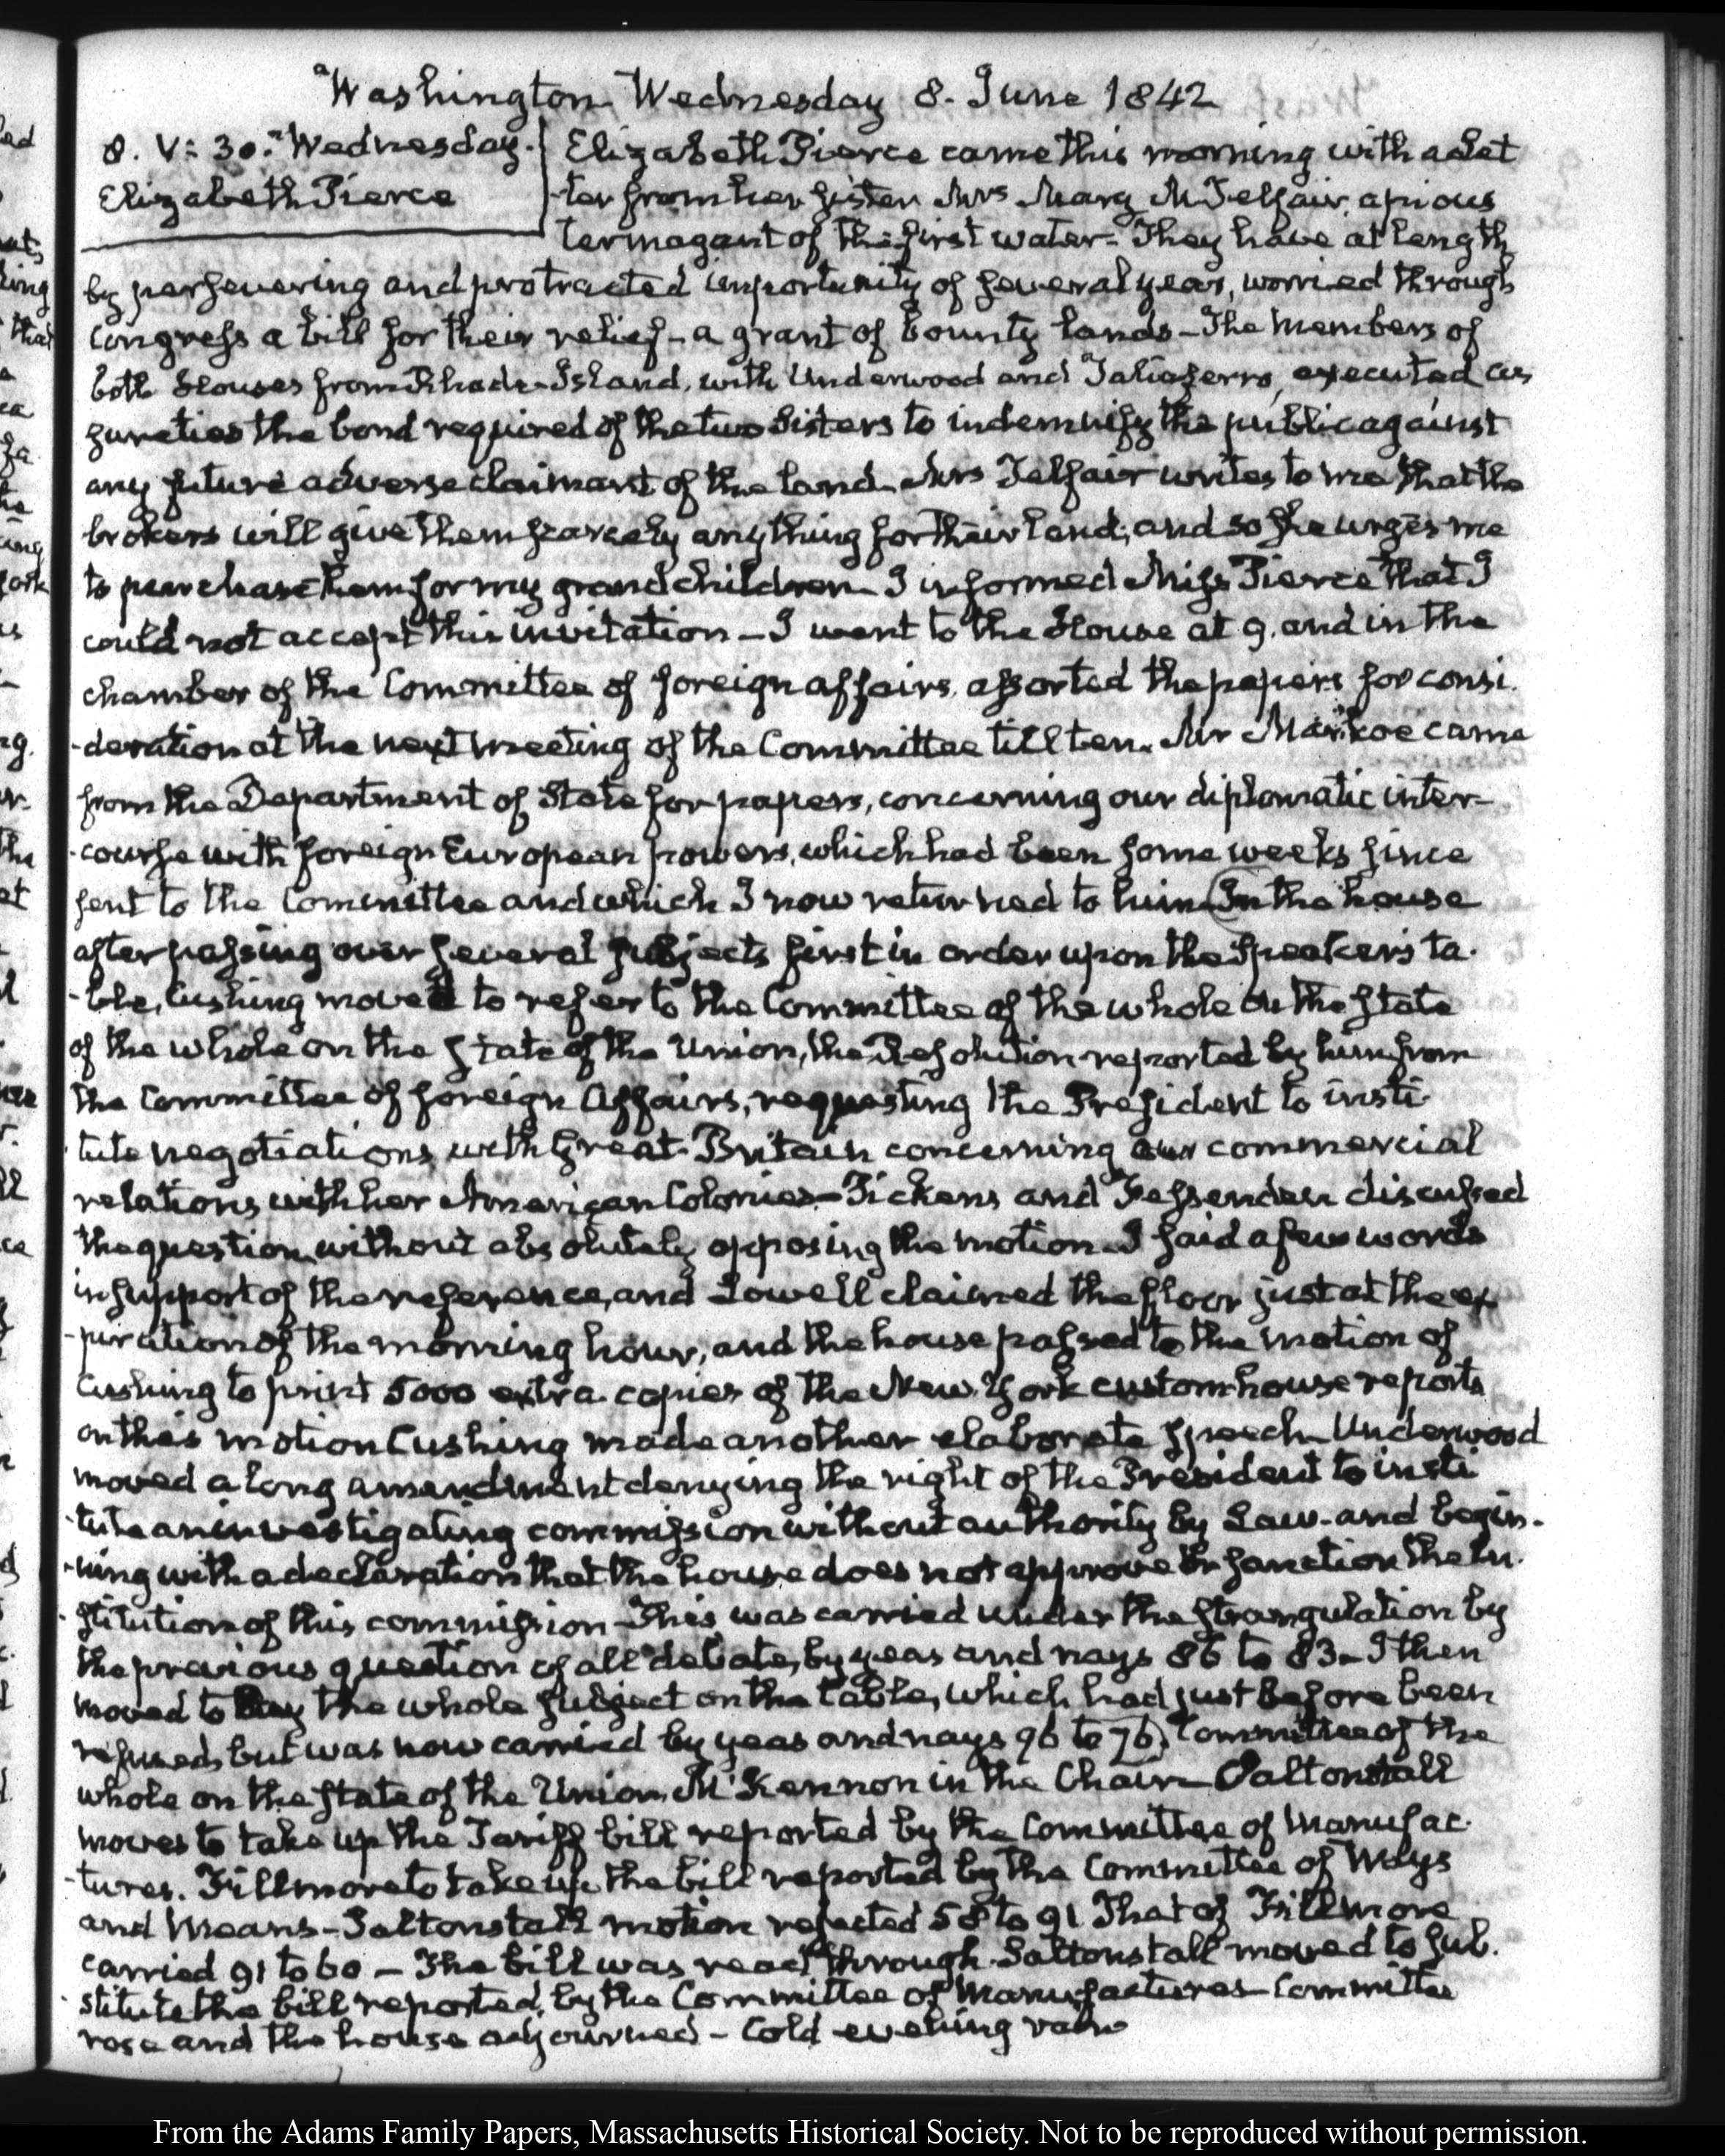 Washington Wednesday 8. June 1842
8. V: 30. Wednesday.
Elizabeth Pierce
Elizabeth Pierce came this morning with a Let
-ter from her sister Mrs Mary M Telfair, a pious
termagant of the first water. They have at length
by persevering and protracted importunity of several years, worried through
Congress a bill for their relief - a grant of bounty lands - The members of
both Houses from Rhode-Island, with Underwood and Taliaferro, executed as
sureties the bond required of the two Sisters to indemnify the public against
any future adverse claimant of the land. Mrs Telfair writes to me that the
brokers will give them scarcely any thing for their land; and so she urges me
to purchase them for my grandchildren - I informed Miss Pierce that I
could not accept this invitation - I went to the House at 9. and in the
chamber of the Committee of foreign affairs, assorted the papers for consi.
-deration at the next meeting of the Committee till ten. Mr Markoe came
from the Department of State for papers, concerning our diplomatic inter-
-course with foreign European powers, which had been some weeks since
sent to the Committee and which I now returned to him (In the house
after passing over several subjects first in order upon the Speaker's ta.
-ble, Cushing moved to refer to the Committee of the whole on the state
of the whole on the state of the Union, the Resolution reported by him from
the Committee of foreign Affairs, requesting the President to insti
-tute negotiations with Great-Britain concerning our commercial
relations with her American Colonies - Pickens and Fessenden discussed
the question without absolutely opposing the motion. I said a few words
in support of the reference, and Lowell claimed the floor just at the ex
-piration of the morning hour, and the house passed to the motion of
Cushing to print 5000 extra copies of the New-York custom-house reports
on this motion Cushing made another elaborate speech - Underwood
moved a long amendment denying the right of the President to insti
-tute an investigating commission without authority by Law - and begin.
-ning with a declaration that the house does not approve or sanction the in.
-stitution of this commission - This was carried under the strangulation by
the previous question of all debate, by yeas and nays 86 to 83 - I then
moved to lay the whole subject on the table, which had just before been
refused, but was now carried by yeas and nays 96 to 76) Committee of the
whole on the state of the Union. McKennon in the Chair - Saltonstall
moves to take up the Tariff bill reported by the Committee of Manufac.
-tures. Fillmore to take up the bill reported by the Committee of Ways
and Means - Saltonstall motion rejected 58 to 91 That of Fillmore
carried 91 to 60 - The bill was read through. Saltonstall moved to sub.
-stitute the bill reported by the Committee of Manufactures - Committee
rose and the house adjourned - Cold evening rain
From the Adams Family Papers, Massachusetts Historical Society. Not to be reproduced without permission.